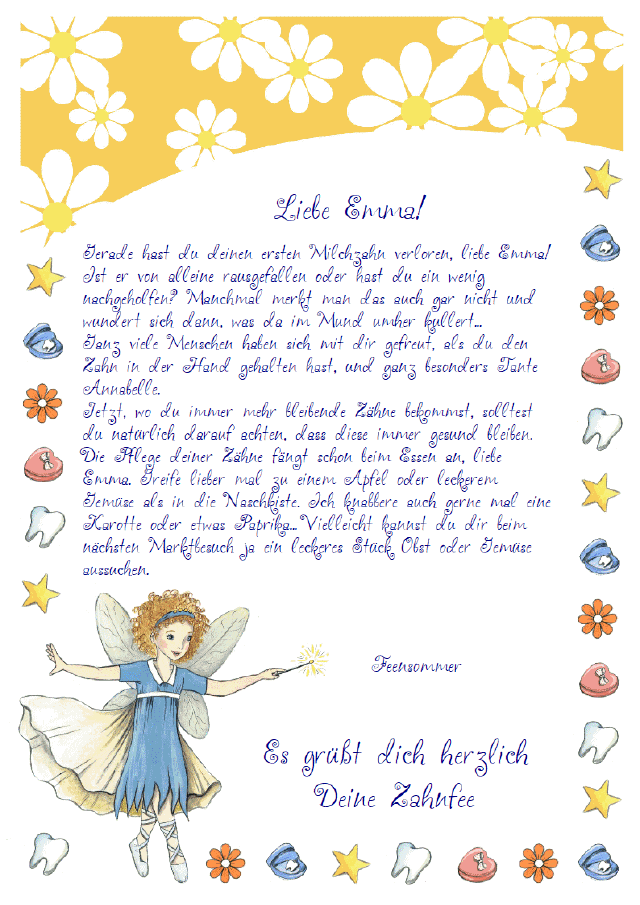 Liebe Emma!
Gerade hast du deinen ersten Milchzahn verloren, liebe Emma!
Ist er von alleine rausgefallen oder hast du ein wenig
nachgeholfen? Manchmal merkt man das auch gar nicht und
wundert sich dann, was da im Mund umher kullert...
Ganz viele Menschen haben sich mit dir gefreut, als du den
Zahn in der Hand gehalten hast, und ganz besonders Tante
Annabelle.
Jetzt, wo du immer mehr bleibende Zähne bekommst, solltest
du natürlich darauf achten, dass diese immer gesund bleiben.
Die Pflege deiner Zähne fängt schon beim Essen an, liebe
Emma. Greife lieber mal zu einem Apfel oder leckerem
Gemüse als in die Naschkiste. Ich knabbere auch gerne mal eine
Karotte oder etwas Paprika... Vielleicht kannst du dir beim
nächsten Marktbesuch ja ein leckeres Stück Obst oder Gemüse
aussuchen.
Feensommer
Es grüßt dich herzlich
Deine Zahnfee